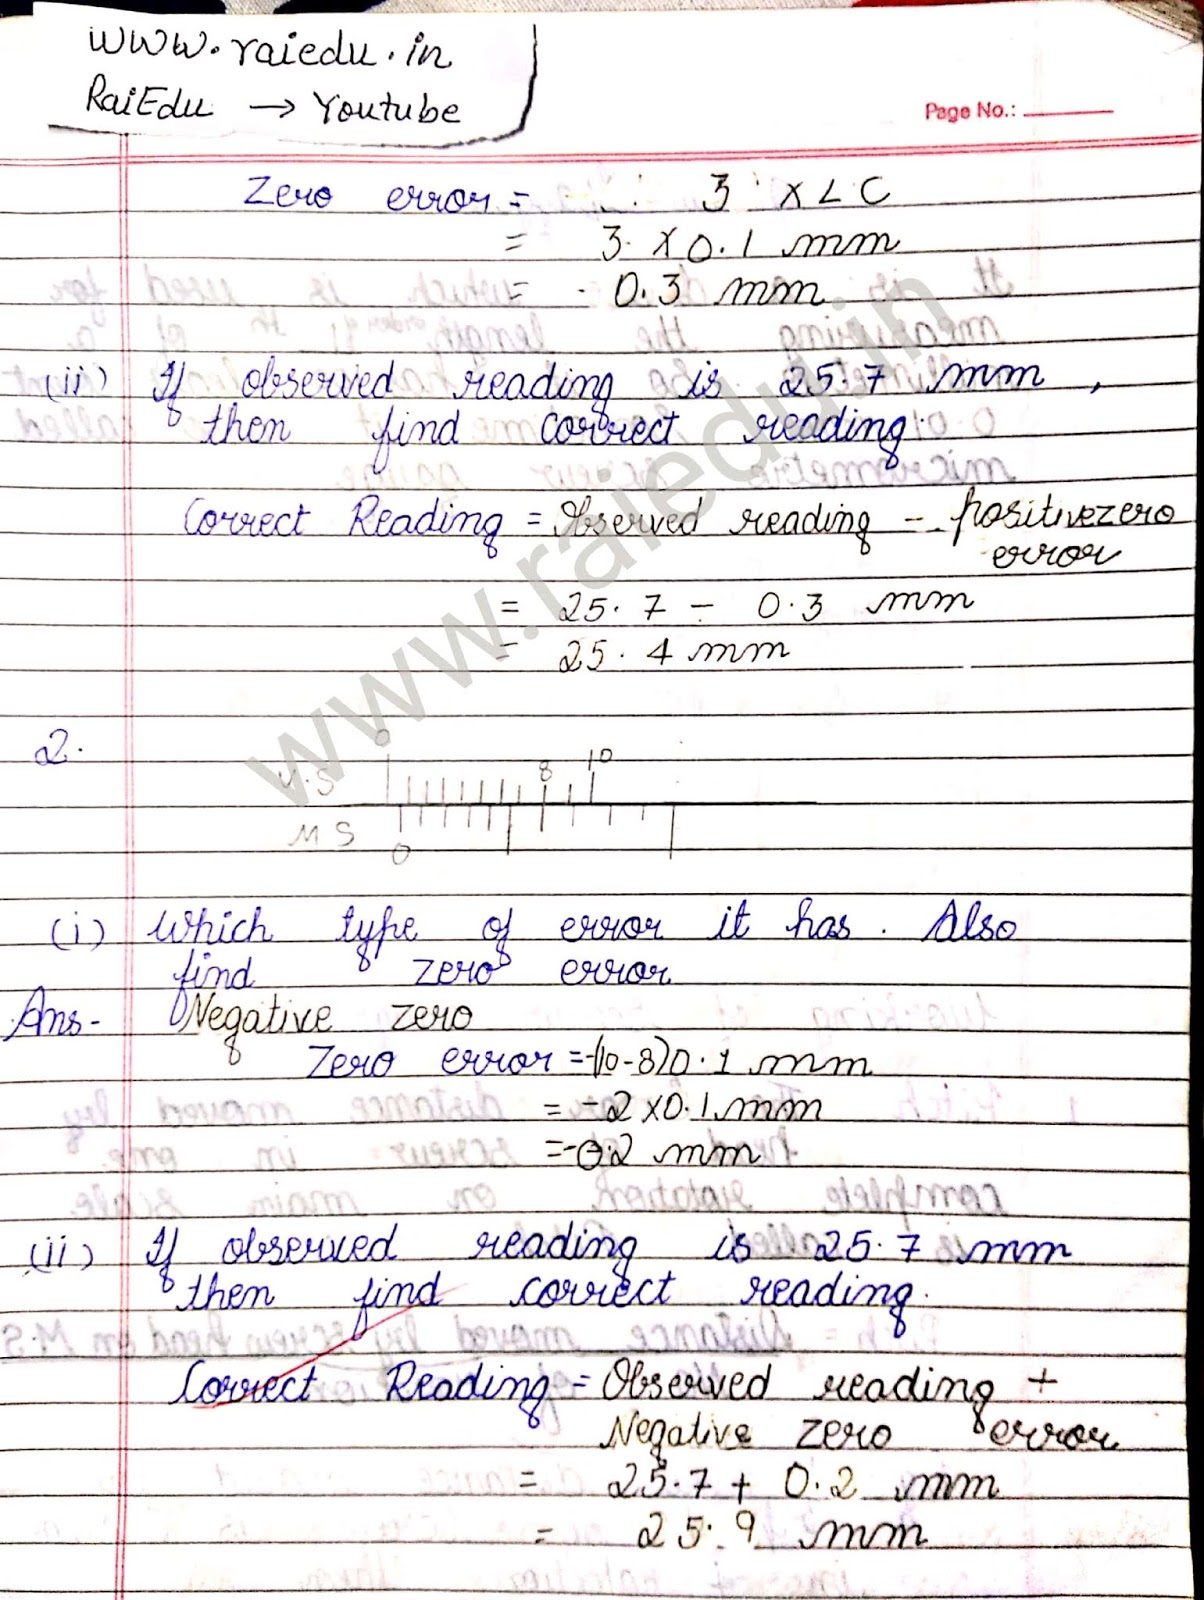 www.raiedu.in
RaiEdu → Youtube
Page No.:
Zero error = 3 × LC
= 3 × 0.1 mm
= 0.3 mm
(ii) If observed reading is 25.7 mm,
then find correct reading.
Correct Reading = Observed reading - positive zero
error
= 25.7 - 0.3 mm
= 25.4 mm
www.raiedu.in
2.
0 8 10
V.S
M S
0
(i) Which type of error it has. Also
find zero error
Ans- Negative zero
Zero error = -(10-8)0.1 mm
= -2 × 0.1 mm
= -0.2 mm
(ii) If observed reading is 25.7 mm
then find correct reading.
Correct Reading = Observed reading +
Negative zero error
= 25.7 + 0.2 mm
= 25.9 mm